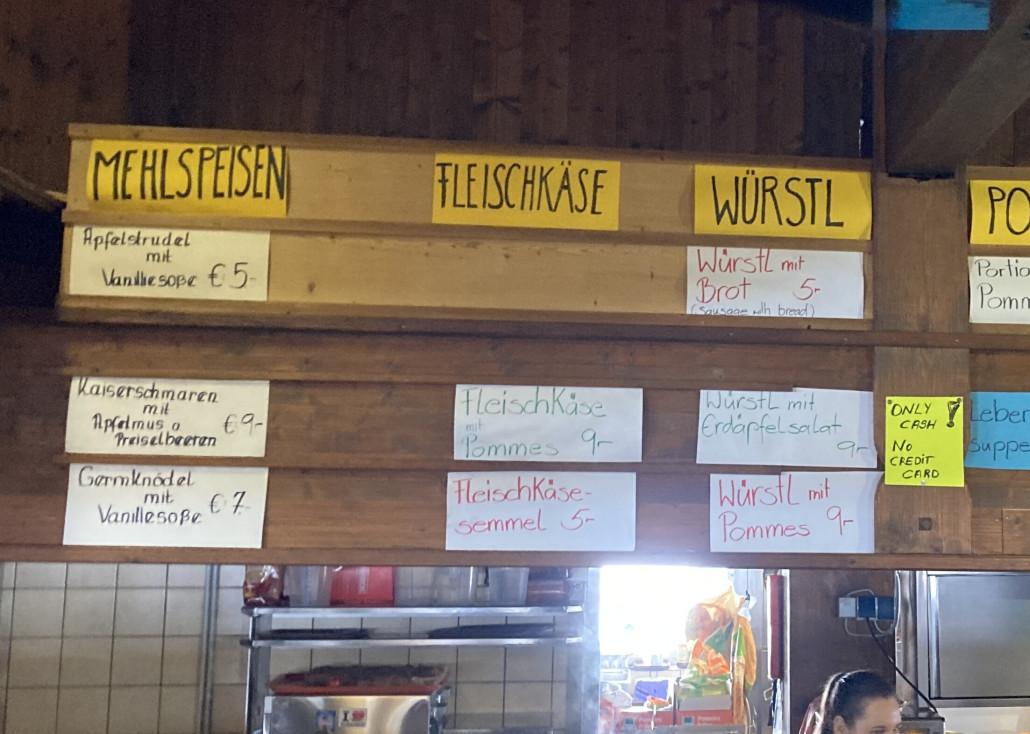 MEHLSPEISEN
Apfelstrudel
mit
Vanillesoße € 5-
Kaiserschmaren
mit
Apfelmus o
Preiselbeeren
€ 9-
Germknödel
mit
Vanillesoße
€ 7-
FLEISCHKÄSE
Fleischkäse
mit
Pommes 9-
Fleischkäse-
semmel 5-
WÜRSTL
Würstl mit
Brot 5-
(sausage with bread)
Würstl mit
Erdäpfelsalat
9-
Würstl mit
Pommes 9-
ONLY
CASH !
No
CREDIT
CARD
PO
Portio
Pomm
Leber
Suppe